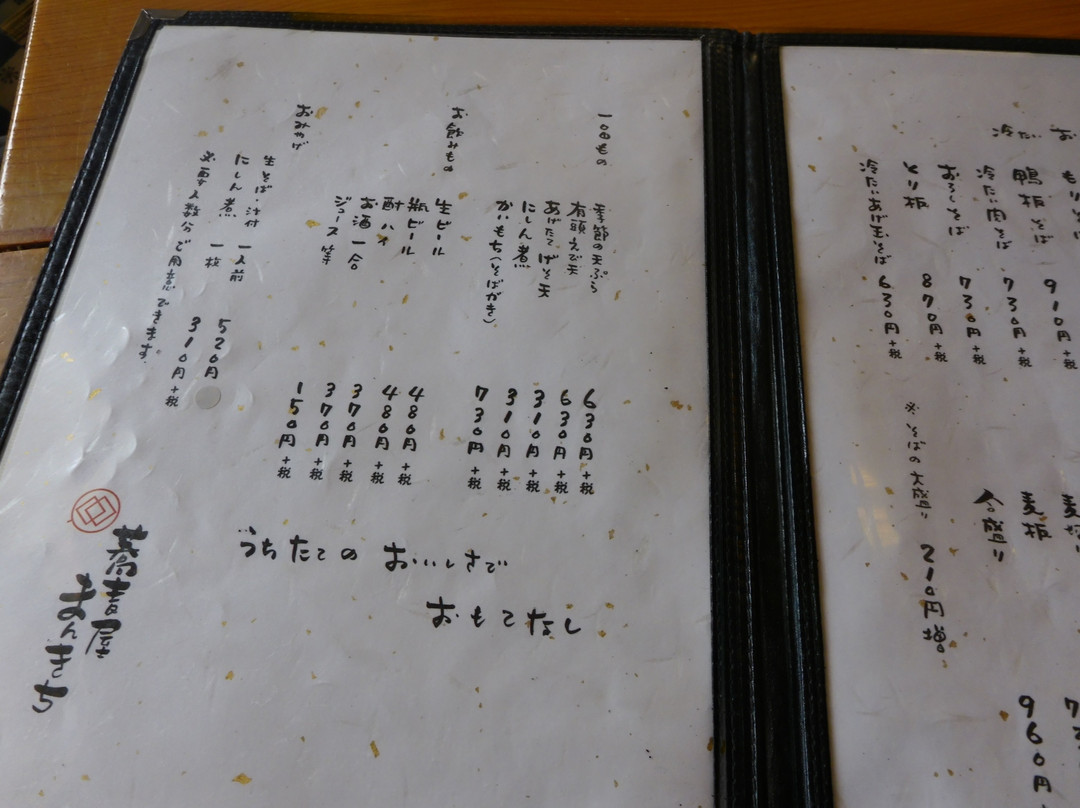 鴨板そば 910円+税
冷たい肉そば 730円+税
おろしそば 730円+税
とり板 870円+税
冷たいあげ玉そば 630円+税
※そばの大盛り 210円増
麦板
合盛り
960円
一品もの
季節の天ぷら 630円+税
有頭えび天 630円+税
あげたてげそ天 310円+税
にしん煮 310円+税
かいもち(そばがき) 730円+税
お飲みもの
生ビール 480円+税
瓶ビール 480円+税
酎ハイ 370円+税
お酒一合 370円+税
ジュース等 150円+税
おみやげ
生そば・汁付 一人前 520円
にしん煮 一枚 310円+税
必要人数分ご用意できます。
うちたてのおいしさで
おもてなし
蕎吉屋
まんきち